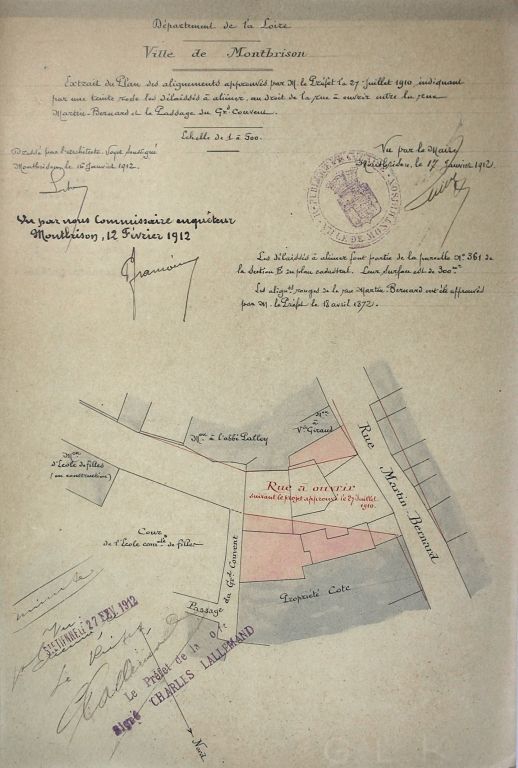 Département de la Loire
Ville de Montbrison
Extrait du Plan des alignements approuvés par M. le Préfet le 27 Juillet 1910, indiquant
par une teinte rose les délaissés à aliéner, au droit de la rue à ouvrir entre la rue
Martin-Bernard et le Passage du Gd Couvent.
Echelle de 1 à 500.
Dressé par l'architecte-Voyer soussigné
Montbrison, le 16 Janvier 1912.
Vu par le Maire
Montbrison, le 17 Janvier 1912.
VILLE DE MONTBRISON
Vu par nous Commissaire enquêteur
Montbrison, 12 Février 1912
Les délaissés à aliéner font partie de la parcelle No 361 de
la Section B du plan cadastral. Leur surface est de 300m
Les aligts rouges de la rue Martin-Bernard ont été approuvés
par M. le Préfet le 18 avril 1872.
Mon à l'abbé Palley
Mon
à
Ve Giraud
Mon
d'Ecole de filles
(en construction)
Rue à ouvrir
suivant le projet approuvé le 27 Juillet
1910.
Rue Martin-Bernard
Cour
de l'Ecole comle de filles
Passage du Gd Couvent
Propriété Cote
minute
Vu
ST-ETIENNE, LE 27 FEV. 1912
Le Préfet
Le Préfet de la Loire
Signé CHARLES LALLEMAND
Nord